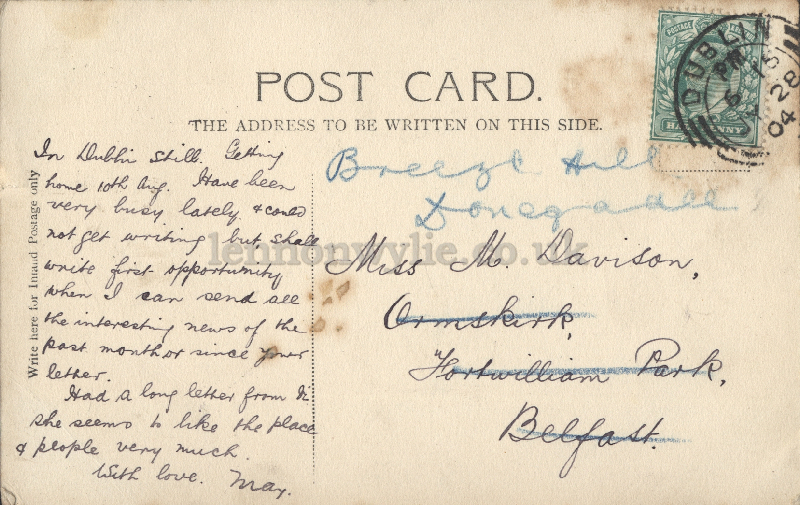 POST CARD.
THE ADDRESS TO BE WRITTEN ON THIS SIDE.
Write here for Inland Postage only
In Dublin still. Getting
home 10th Aug. Have been
very busy lately & could
not get writing but, shall
write first opportunity
when I can send all
the interesting news of the
past month or since your
letter.
Had a long letter from
she seems to like the place
& people very much.
With love. May.
Breeze Hill
Donegadee
Miss M. Davison,
Ormskirk,
Fortwilliam Park,
Belfast.
lennonwylie.co.uk
POSTAGE
HALFPENNY
DUBLIN
6 15 PM
28
04